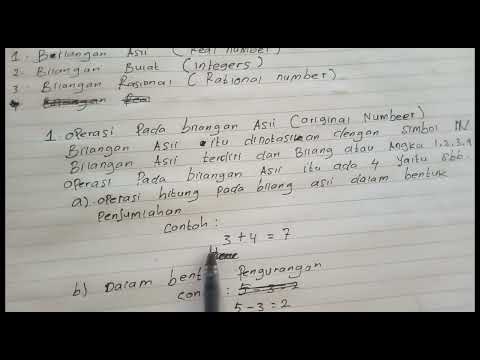 1. Bilangan Asii (Real number)
2. Bilangan Bulat (integers)
3. Bilangan Rasional (Rational number)
1. operasi Pada bilangan Asii (original Number)
Bilangan Asii itu dinotasikan dengan simbol IN
Bilangan Asii terdiri dari Bilang atau Angka 1,2,3,4
operasi Pada bilangan Asii itu ada 4 yaitu sbb.
a). operasi hitung pada bilang asii dalam bentuk
Penjumlahan
contoh:
3 + 4 = 7
b) Dalam Pengurangan
5 - 3 = 2
5 - 3 = 2